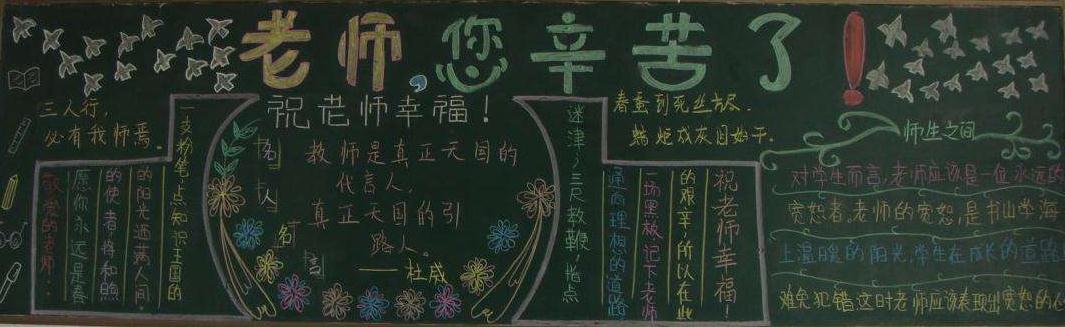 老师,您辛苦了!
三人行,
必有我师焉。
敬爱的老师…
愿你永远是春
的使者将和煦
的阳光洒满人间
一支粉笔,点知识王国的
祝老师幸福!
名人名言
教师是真正天国的
代言人,
真正天国的引
路人。
——杜威
迷津;三尺教鞭,指点
通向理想的道路
一场黑板记下老师
的艰辛,所以在此
祝老师幸福!
春蚕到死丝方尽.
蜡炬成灰因始干.
师生之间
对学生而言,老师应该是一位永远的
宽恕者。老师的宽恕,是书山学海
上温暖的阳光,学生在成长的道路
难免犯错,这时老师应该表现出宽恕的心